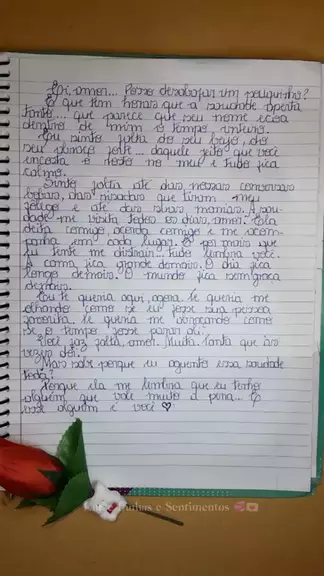 Oi, amor... Posso desabafar um pouquinho?
É que tem horas que a saudade aperta
tanto... que parece que seu nome ecoa
dentro de mim o tempo inteiro.
Eu sinto falta do seu beijo, do
seu abraço forte... daquele jeito que você
encosta o rosto no meu e tudo fica
calmo.
Sinto falta até das nossas conversas
bobas, das risadas que tiram meu
fôlego e até das suas manias. A sau-
dade me visita todos os dias, amor. Ela
deita comigo, acorda comigo e me acom-
panha em cada lugar. E por mais que
eu tente me distrair... tudo lembra você.
A cama fica grande demais. O dia fica
longo demais. O mundo fica sem graça
demais.
Eu te queria aqui, agora. Te queria me
olhando como se eu fosse sua pessoa
favorita. Te queria me abraçando como
se o tempo fosse parar ali.
Você faz falta, amor. Muita. Tanta que às
vezes dói.
Mas sabe porque eu aguento essa saudade
toda?
Porque ela me lembra que eu tenho
alguém que vale muito a pena... E
esse alguém é você ♡
Linhas e Sentimentos